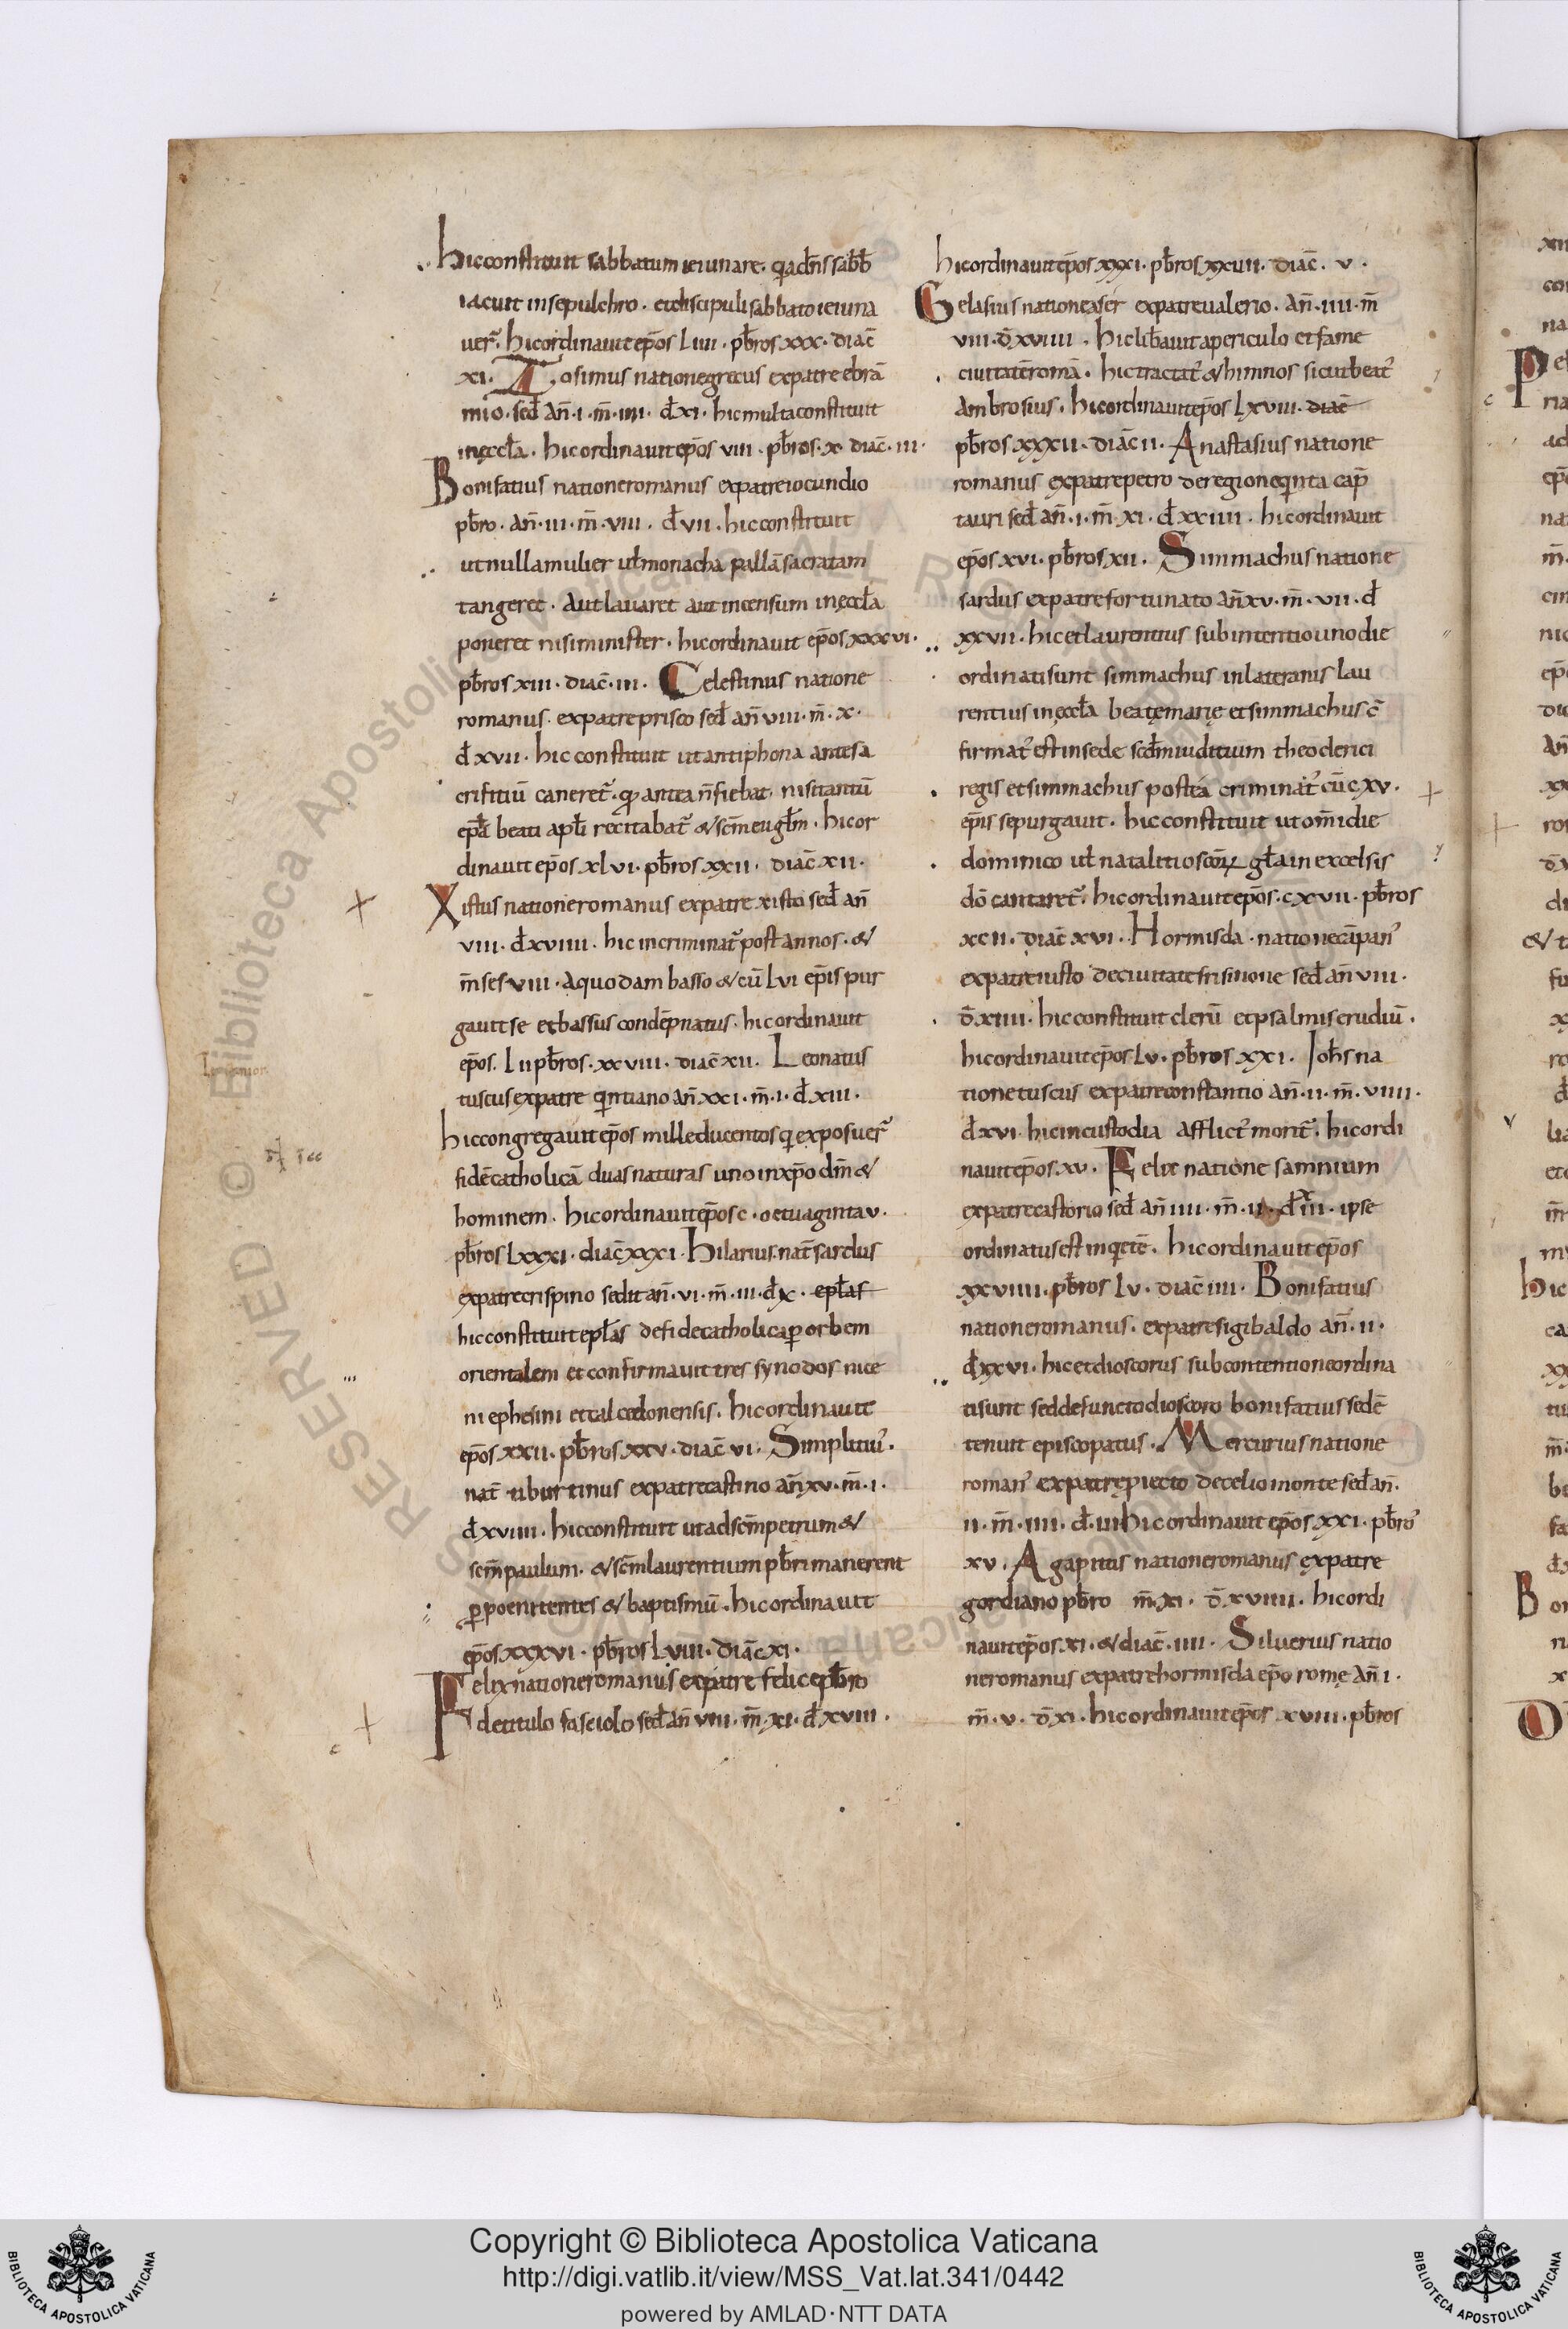 hic constituit sabbatum ieiunare. q̄a dn̄s sabb̄
iacuit in sepulchro. et discipuli sabbato ieiuna
uer̄. hic ordinauit ep̄os LIIII. pb̄ros xxx. diac̄
xi. Zosimus natione grecus ex patre ebrā
mio. sed̄ an̄. i. m̄. iii. d̄ xi. hic multa constituit
in ęccła. hic ordinauit ep̄os viii. pb̄ros. x. diac̄. iii.
Bonifatius natione romanus ex patre iocundio
pb̄ro. an̄. iii. m̄. viii. d̄ vii. hic constituit
ut nulla mulier ut̄ monacha pallā sacratam
tangeret. aut lauaret aut incensum in ęccła
poneret nisi minister. hic ordinauit ep̄os xxxvi.
pb̄ros xiii. diac̄. iii. Celestinus natione
romanus. ex patre prisco sed̄ an̄ viii. m̄. x.
d̄ xvii. hic constituit ut antiphona ante sa
crifitiū caneret̄. qđ antea n̄ fiebat. nisi tantū
ep̄ła beati apłi recitabat̄ & sc̄m eugłm. hic or
dinauit ep̄os xlvi. pb̄ros xxii. diac̄ xii.
Xistus natione romanus ex patre xisto sed̄ an̄
viii. d̄ xviiii. hic incriminat̄ post annos. &
m̄ses viii. a quodam basso & cū Lvi ep̄is pur
gauit se et bassus condēpnatus. hic ordinauit
ep̄os. Lii pb̄ros. xxviii. diac̄ xii. Leo natus
tuscus ex patre q̄intiano an̄ xxi. m̄. i. d̄ xiii.
hic congregauit ep̄os mille ducentos q̄i exposuer̄
fidē catholicā duas naturas uno in xp̄o dm̄ &
hominem. hic ordinauit ep̄os c. octuaginta v.
pb̄ros Lxxxi. diac̄ xxxi. Hilarius. nat̄ sardus
ex patre crispino sedit an̄. vi. m̄. iii. d̄ x. epłas
hic constituit epłas de fide catholica p̄ orbem
orientalem et confirmauit tres synodos nice
ni ephesini et calcedonensis. hic ordinauit
ep̄os xxii. pb̄ros xxv. diac̄ vi. Simplitiu᾽.
nat̄ tiburtinus ex patre castino an̄ xv. m̄. i.
d̄ xviiii. hic constituit ut ad sc̄m petrum &
sc̄m paulum. & sc̄m laurentium pb̄ri manerent
p̄ poenitentes & baptismū. hic ordinauit
ep̄os xxxvi. pb̄ros Lviii. diac̄ xi.
Felix natione romanus ex patre felice pb̄ro
de titulo fasciolo sed̄ an̄ viii. m̄. xi. d̄ xviii.
hic ordinauit ep̄os xxxi. pb̄ros xxvii. diac̄. v.
Gelasius natione afer ex patre ualerio. an̄. iiii. m̄
viii. d̄ xviiii. hic lib̄auit a periculo et fame
ciuitatē romā. hic tractat᾽ & himnos sicut beat᾽
ambrosius. hic ordinauit ep̄os Lxviii. diac̄
pb̄ros xxxii. diac̄ ii. Anastasius natione
romanus ex patre petro de regione q̄inta cap̄
tauri sed̄ an̄. i. m̄. xi. d̄ xxiiii. hic ordinauit
ep̄os xvi. pb̄ros xii. Simmachus natione
sardus ex patre fortunato an̄ xv. m̄. vii. d̄
xxvii. hic et laurentius sub intentio uno die
ordinati sunt simmachus in lateranis lau
rentius in ęccła beatę marię et simmachus c̄
firmat᾽ est in sede scd̄m iuditium theoderici
regis et simmachus postea criminat᾽ cū cxv.
ep̄is se purgauit. hic constituit ut om̄i die
dominico ut̄ natalitio scōꝝ gła in excelsis
dō cantaret̄. hic ordinauit ep̄os. cxvii. pb̄ros
xcii. diac̄ xvi. Hormisda. natione cāpan᾽
ex patre iusto de ciuitate frisinone sed̄ an̄ viii.
d̄ xiiii. hic constituit clerū et psalmis erudiū.
hic ordinauit ep̄os Lv. pb̄ros xxi. Ioh̄s na
tione tuscus ex patre constantio an̄. ii. m̄. viiii.
d̄ xvi. hic in custodia afflict᾽ morit̄. hic ordi
nauit ep̄os. xv. Felix natione samnium
ex patre castorio sed̄ an̄ iiii. m̄. ii. d̄ iii. ipse
ordinatus est in q̄etē. hic ordinauit ep̄os
xxviiii. pb̄ros Lv. diac̄ iiii. Bonifatius
natione romanus. ex patre sigibaldo an̄. ii.
d̄ xxvi. hic et dioscorus sub contentione ordina
ti sunt sed defuncto dioscoro bonifatius sedē
tenuit episcopatus. Mercurius natione
roman᾽ ex patre p̄iecto de celio monte sed̄ an̄.
ii. m̄. iiii. d̄. iii hic ordinauit ep̄os xxi. pb̄ro᾽
xv. Agapitus natione romanus ex patre
gordiano pb̄ro m̄. xi. d̄. xviiii. hic ordi
nauit ep̄os xi. & diac̄. iiii. Siluerius natio
ne romanus ex patre hormisda ep̄o romę an̄ i.
m̄. v. d̄ xi. hic ordinauit ep̄os xviii. pb̄ros
Copyright © Biblioteca Apostolica Vaticana
http://digi.vatlib.it/view/MSS_Vat.lat.341/0442
powered by AMLAD·NTT DATA
BIBLIOTECA APOSTOLICA VATICANA
BIBLIOTECA APOSTOLICA VATICANA